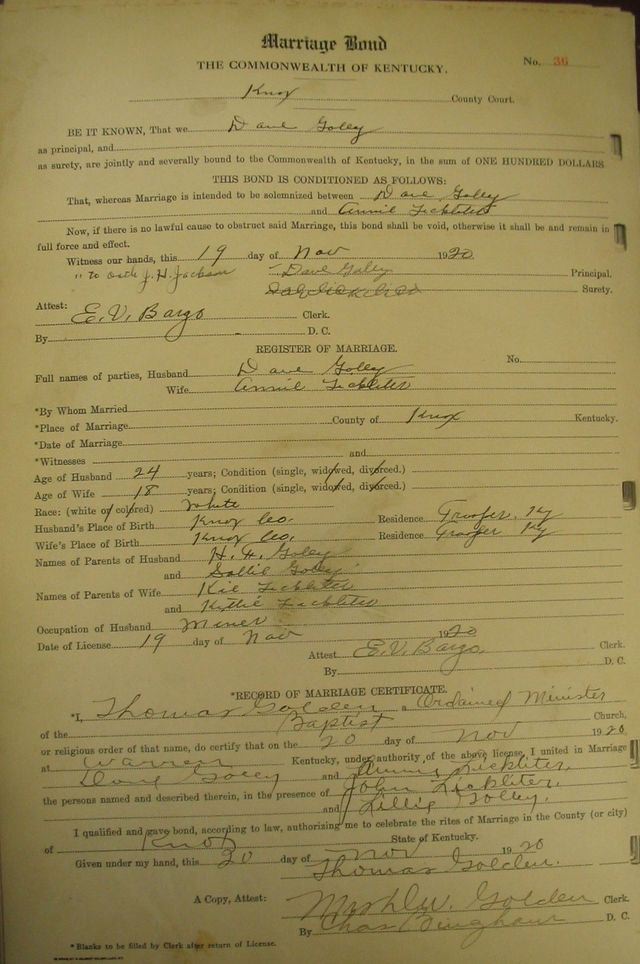 Marriage Bond
THE COMMONWEALTH OF KENTUCKY. No. 36
Knox County Court.
BE IT KNOWN, That we Dave Goley
as principal, and
as surety, are jointly and severally bound to the Commonwealth of Kentucky, in the sum of ONE HUNDRED DOLLARS
THIS BOND IS CONDITIONED AS FOLLOWS:
That, whereas Marriage is intended to be solemnized between Dave Goley
and Annie Lickliter
Now, if there is no lawful cause to obstruct said Marriage, this bond shall be void, otherwise it shall and remain in
full force and effect.
Witness our hands, this 19 day of Nov 1920
to oath J. H. Jackson Dave Goley Principal.
Surety.
Attest:
E. V. Bargo Clerk.
By D. C.
REGISTER OF MARRIAGE.
Full names of parties, Husband Dave Goley No.
Wife Annie Lickliter
*By Whom Married
*Place of Marriage County of Knox Kentucky.
*Date of Marriage
*Witnesses and
Age of Husband 24 years; Condition (single, widowed, divorced.)
Age of Wife 18 years; Condition (single, widowed, divorced.)
Race: (white or colored) White
Husband's Place of Birth Knox Co. Residence Trosper, Ky
Wife's Place of Birth Knox Co. Residence Trosper Ky
Names of Parents of Husband H. H. Goley
and Sallie Goley
Names of Parents of Wife Lickliter
and Kittie Lickliter
Occupation of Husband Miner
Date of License 19 day of Nov 1920
Attest E. V. Bargo Clerk.
By D. C.
*RECORD OF MARRIAGE CERTIFICATE.
*I, Thomas Golden a Ordained Minister
of the Baptist Church,
or religious order of that name, do certify that on the 20 day of Nov 1920
at Warren Kentucky, under authority of the above license, I united in Marriage
Dave Goley and Annie Lickliter,
the persons named and described therein, in the presence of John Lickliter,
and Lillie Golley,
I qualified and gave bond, according to law, authorizing me to celebrate the rites of Marriage in the County (or city)
of Knox State of Kentucky.
Given under my hand, this 20 day of Nov 1920
Thomas Golden.
A Copy, Attest: Golden Clerk.
By Chas Bingham D. C.
*Blanks to be filled by Clerk after return of License.